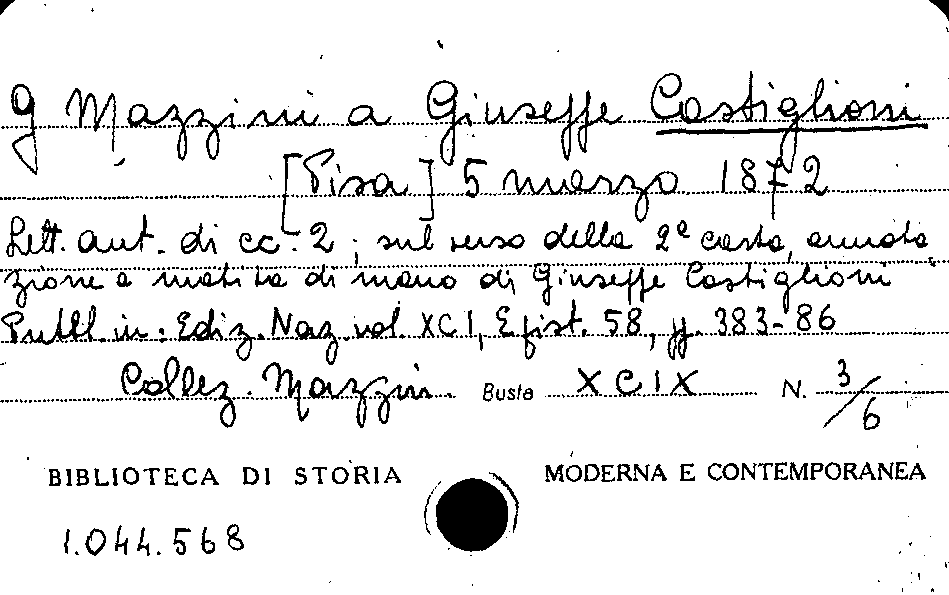 G Mazzini a Giuseppe Castiglioni
[Pisa] 5 marzo 1872
Lett. aut. di cc. 2; sul verso della 2ª carta, annota
zione a matita di mano di Giuseppe Castiglioni
Pubbl. in: Ediz. Naz. vol. XCI, Epist. 58, pp. 383-86
Collez. Mazzini. Busta XCIX N. 3/6
BIBLIOTECA DI STORIA MODERNA E CONTEMPORANEA
1.044.568